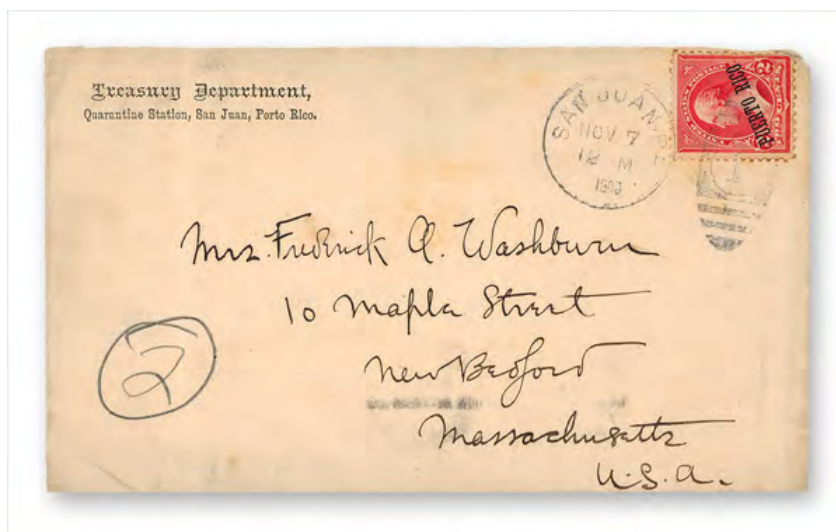 Treasury Department,
Quarantine Station, San Juan, Porto Rico.
SAN JUAN P.R.
NOV 7
12 M
1900
PUERTO RICO
Mrs. Frederick A. Washburn
10 Maple Street
New Bedford
Massachusetts
U.S.A.
2